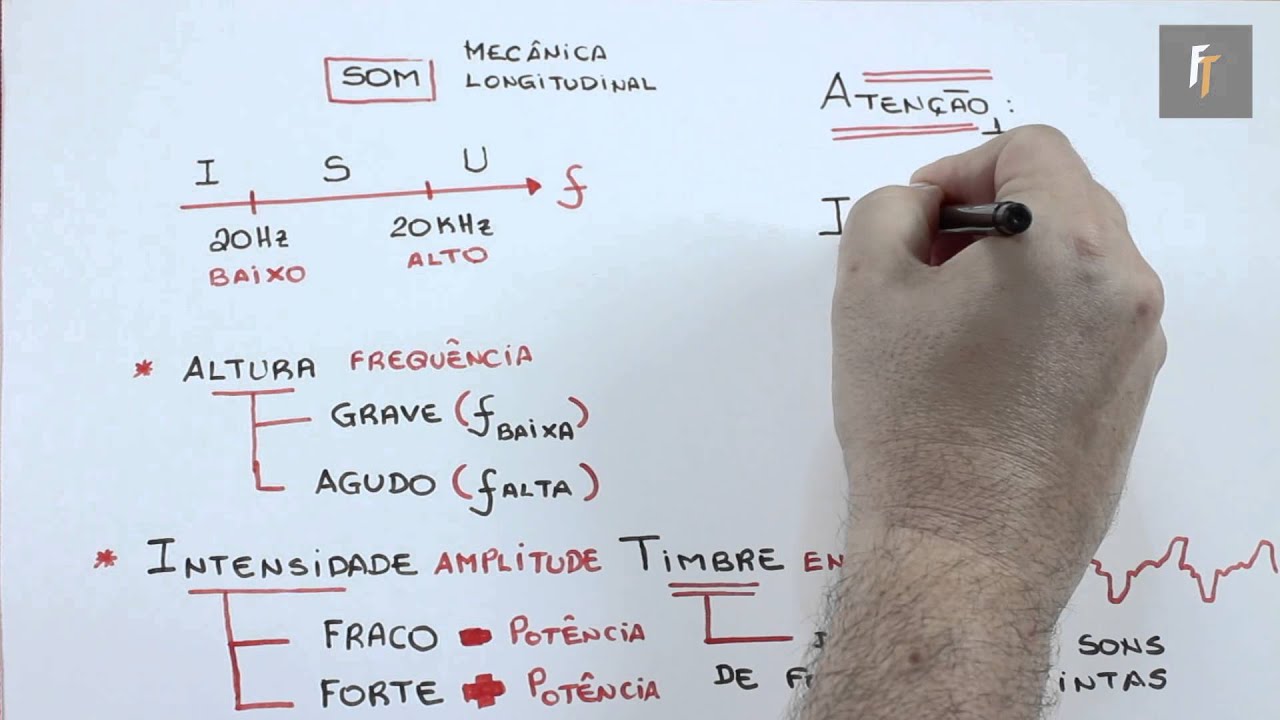 SOM
MECÂNICA
LONGITUDINAL
I S U f
20Hz 20KHz
BAIXO ALTO
* ALTURA FREQUÊNCIA
GRAVE (f BAIXA)
AGUDO (f ALTA)
* INTENSIDADE AMPLITUDE
FRACO - POTÊNCIA
FORTE + POTÊNCIA
TIMBRE
SONS
DE
ATENÇÃO:
I
FT